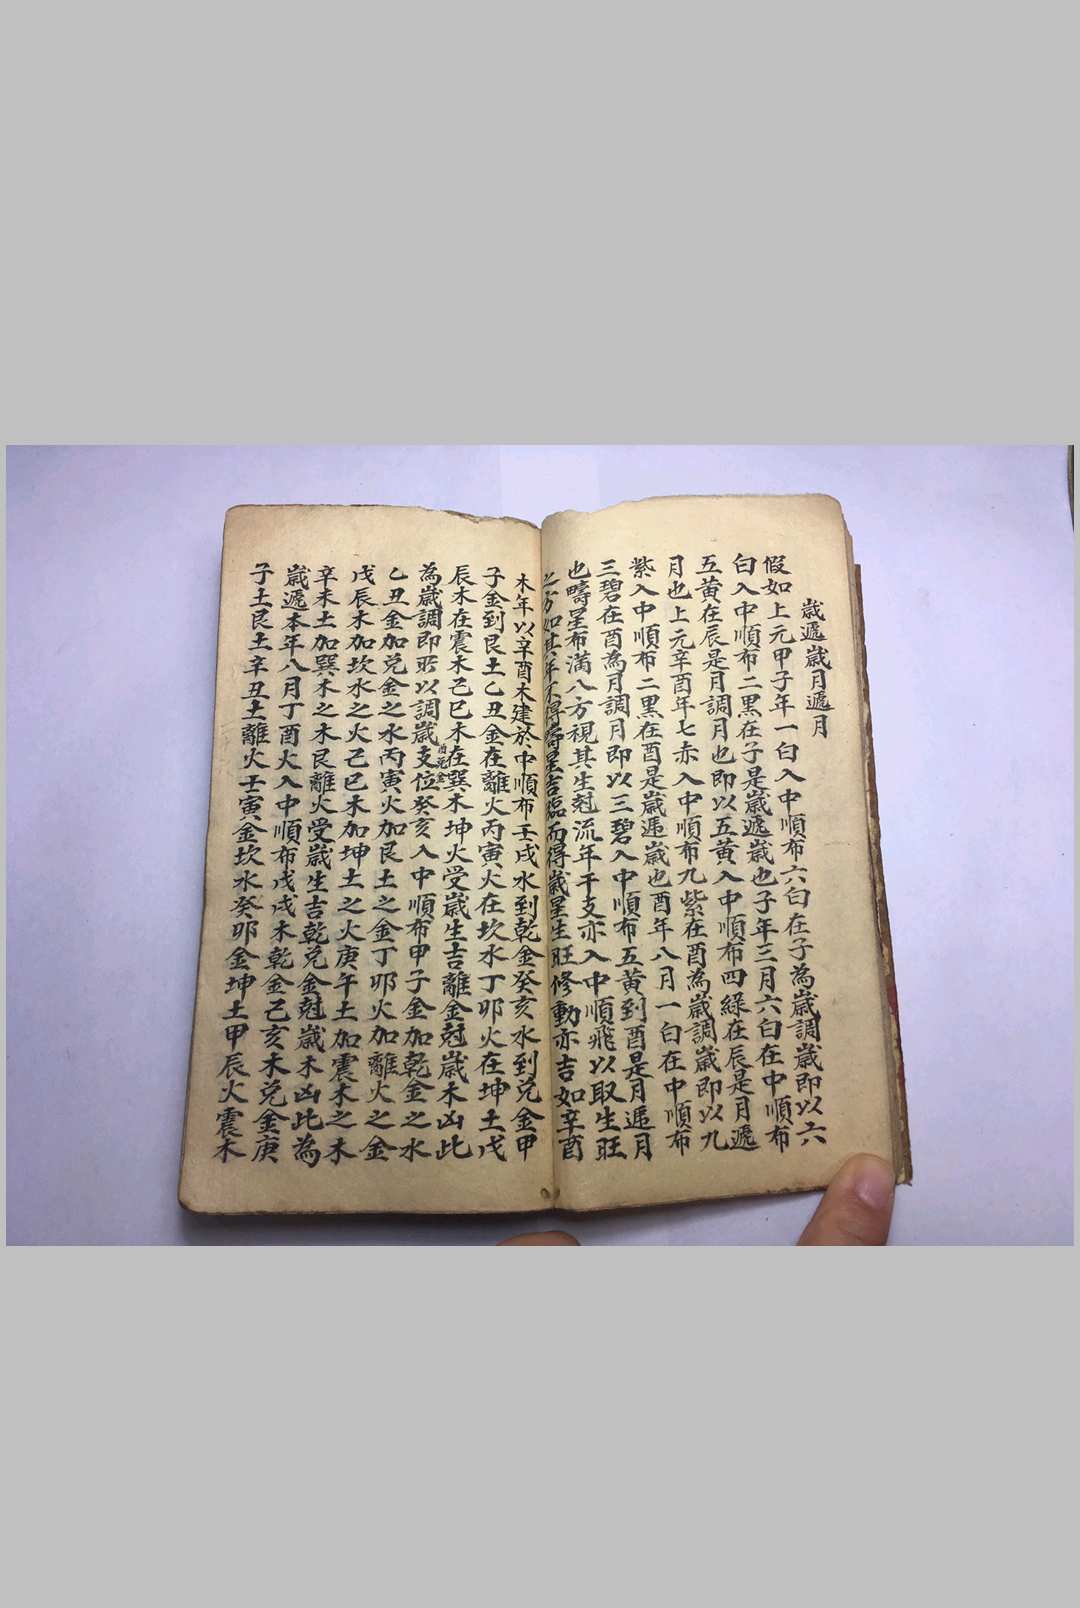 歲遞歲月遞月
假如上元甲子年一白入中順布六白在子為歲調歲即以六
白入中順布二黑在子是歲遞歲也子年三月六白在中順布
五黃在辰是月調月也即以五黃入中順布四綠在辰是月遞
月也上元辛酉年七赤入中順布九紫在酉為歲調歲即以九
紫入中順布二黑在酉是歲遞歲也酉年八月一白在中順布
三碧在酉為月調月即以三碧入中順布五黃到酉是月遞月
也疇星布滿八方視其生尅流年干支亦入中順飛以取生旺
之方如其年不得疇星吉臨而得歲星生旺修動亦吉如辛酉
木年以辛酉木建於中順布壬戌水到乾金癸亥水到兌金甲
子金到艮土乙丑金在離火丙寅火在坎水丁卯火在坤土戊
辰木在震木己巳木在巽木坤火受歲生吉離金尅歲木凶此
為歲調即所以調歲支位酉兌金癸亥入中順布甲子金加乾金之水
乙丑金加兌金之水丙寅火加艮土之金丁卯火加離火之金
戊辰木加坎水之火己巳木加坤土之火庚午土加震木之木
辛未土加巽木之木艮離火受歲生吉乾兌金尅歲木凶此為
歲遞本年八月丁酉火入中順布戊戌木乾金己亥木兌金庚
子土艮土辛丑土離火壬寅金坎水癸卯金坤土甲辰火震木